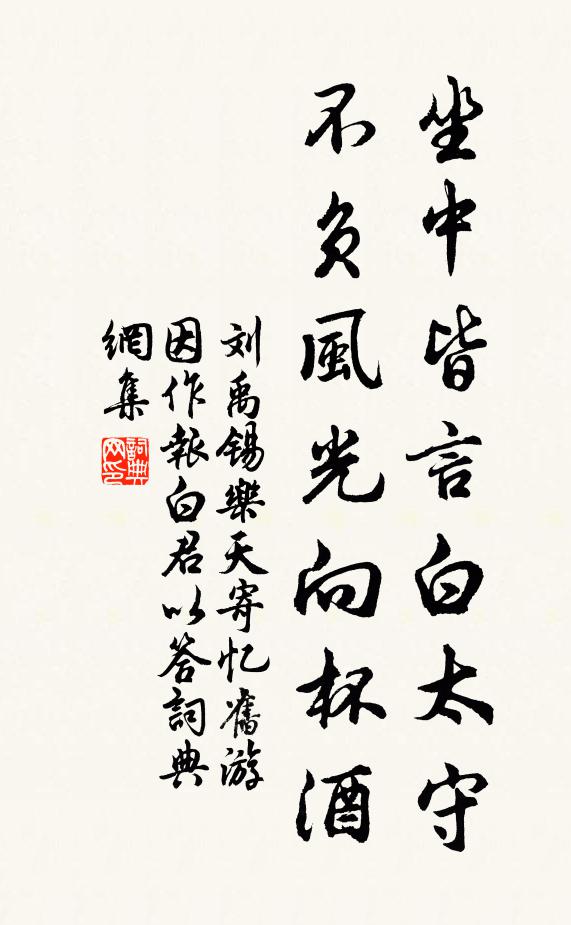 坐中皆言白太守
不負風光向杯酒
刘禹锡樂天寄忆舊游
因作報白君以答詞典
網集
詞典
网印